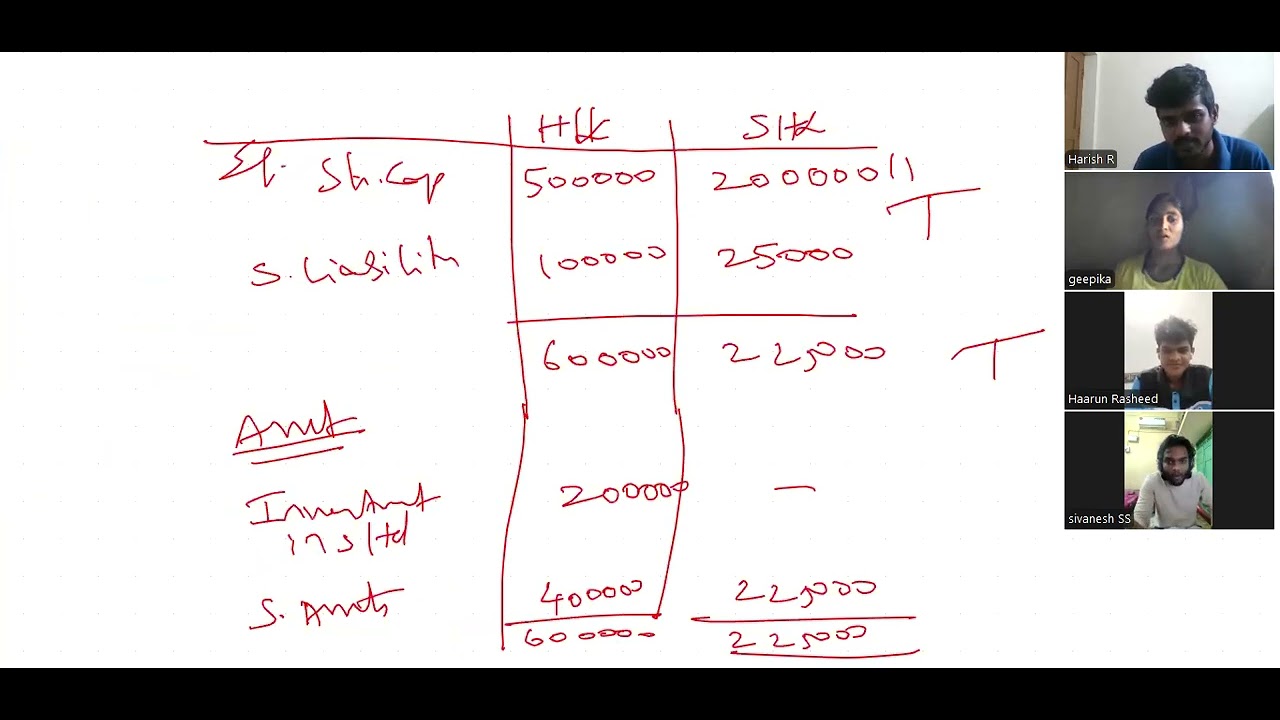 H Ltd S Ltd
Sh. Cap 500000 200000
S. Liability 100000 25000
600000 225000
Asset
Investment 200000 —
in S Ltd
S. Assets 400000 225000
600000 225000
Harish R
geepika
Haarun Rasheed
sivanesh SS